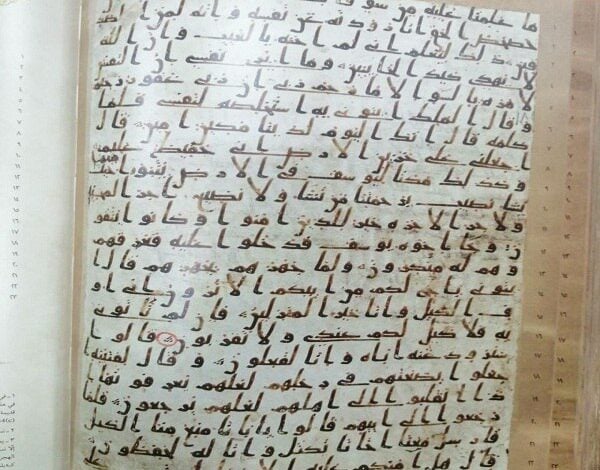 ما علمنا عليه من سو
حصحص الحق انا رودته عن نفسه وانه لمن الصد
قين ذلك ليعلم اني لم اخنه بالغيب وان الله
لا يهدي كيد الخاينين وما ابري نفسي ان النفس
لامره بالسو الا ما رحم ربي ان ربي غفور رحيم
و قال الملك ايتوني به استخلصه لنفسي فلما
كلمه قال انك اليوم لدينا مكين امين قال
اجعلني على خزين الارض اني حفيظ عليم
و كذلك مكنا ليوسف في الارض يتبوا منها
يشا نصيب برحمتنا من نشا ولا نضيع اجر المحسنين
ولاجر الاخره خير للذين امنوا وكانوا يتقو
ن وجا اخوه يوسف فدخلوا عليه فعرفهم
وهم له منكرون ولما جهزهم بجهزهم قال ا
يتوني باخ لكم من ابيكم الا ترون اني او
في الكيل وانا خير المنزلين فان لم تاتوني
به فلا كيل لكم عندي ولا تقربون قالوا
سنرود عنه اباه وانا لفعلون وقال لفتينه ا
جعلوا بضعتهم في رحلهم لعلهم يعرفونها ا
ذا انقلبوا الى اهلهم لعلهم يرجعون فلما
رجعوا الى ابيهم قالوا يابانا منع منا الكيل
فارسل معنا اخانا نكتل وانا له لحفظون
قال هل امنكم عليه الا كما امنتكم على